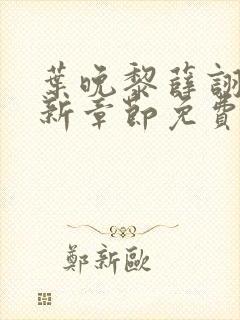 葉晚黎薛詡
新章節免費
鄭新歐